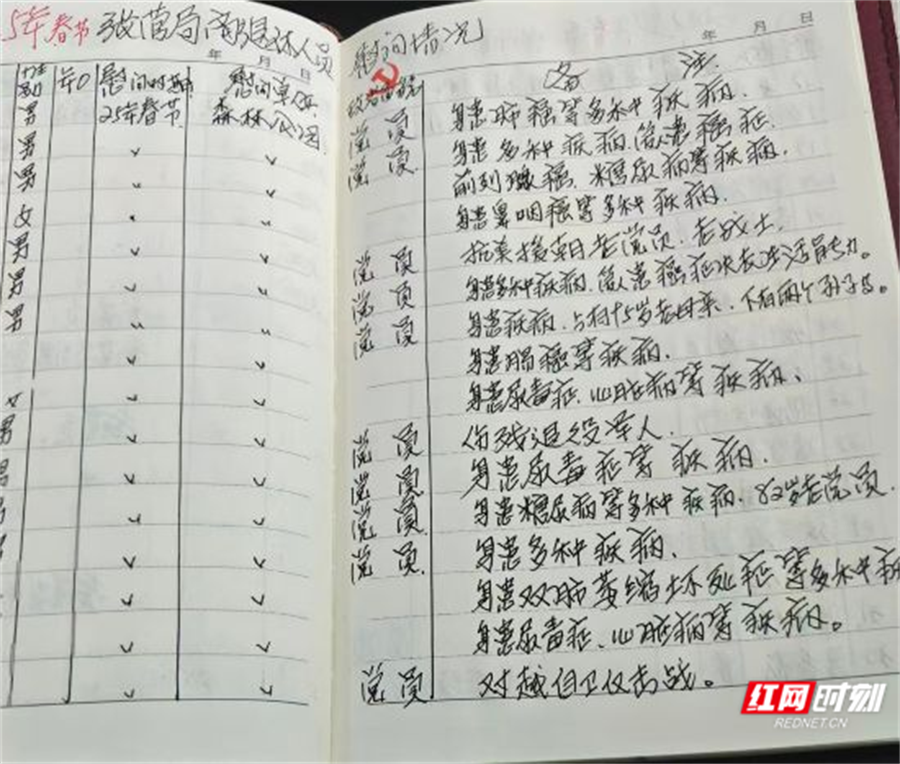 5年春节 张管局离退休人员
慰问情况
年 月 日
年 月 日
性别 年 慰问时期 慰问单位 政治面貌 备 注
男 25年春节 森林公园 党员 身患肺癌等多种疾病.
男 党员 身患多种疾病.家人患癌症.
男 前列腺癌、糖尿病等疾病.
女 身患鼻咽癌等多种疾病.
男 党员 抗美援朝老党员、老战士.
男 党员 身患多种疾病.家人患癌症失去生活能力。
男 党员 身患疾病.上有95岁老母亲、下有两个孙子
身患肠癌等疾病.
女 身患尿毒症、心脏病等疾病、
男 党员 伤残退役军人.
男 党员 身患尿毒症等疾病.
男 党员 身患糖尿病等多种疾病.82岁老党员.
党员 身患多种疾病.
身患双肺萎缩坏死症等多种
身患尿毒症、心脏病等疾病。
党员 对越自卫反击战。
红网时刻
REDNET.CN